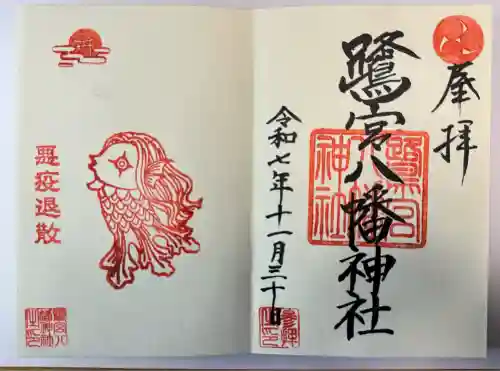 奉拝
鷺宮八幡神社
鷺宮
八幡
神社
令和七年十一月三十日
悪疫退散